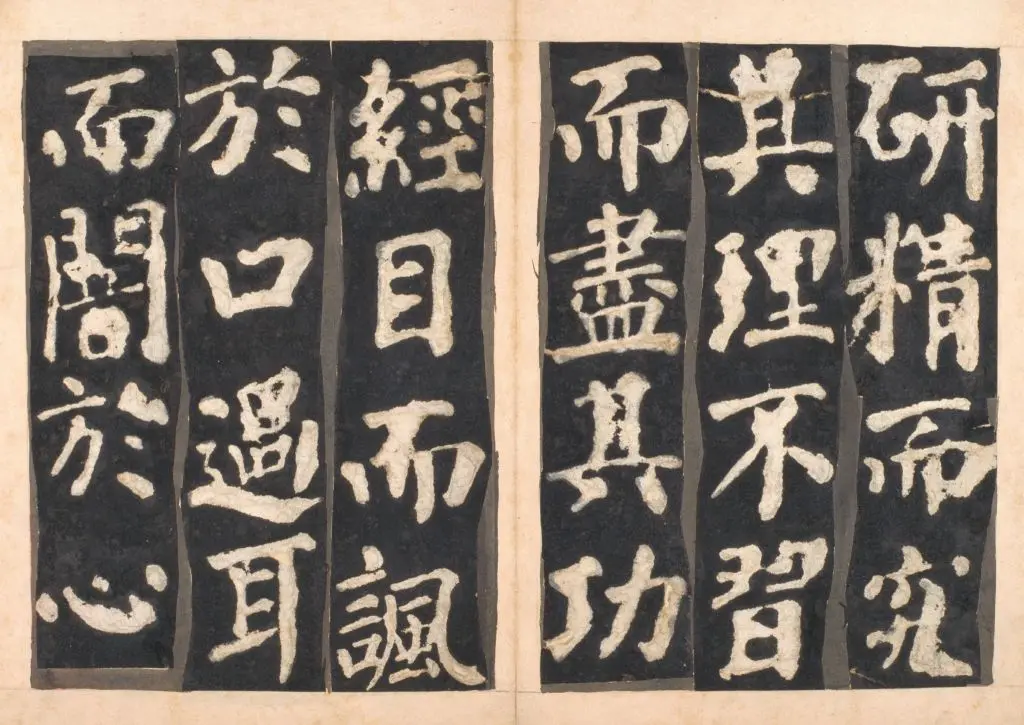 研精而究
其理不習
而盡其功
經目而諷
於口過耳
而闇於心